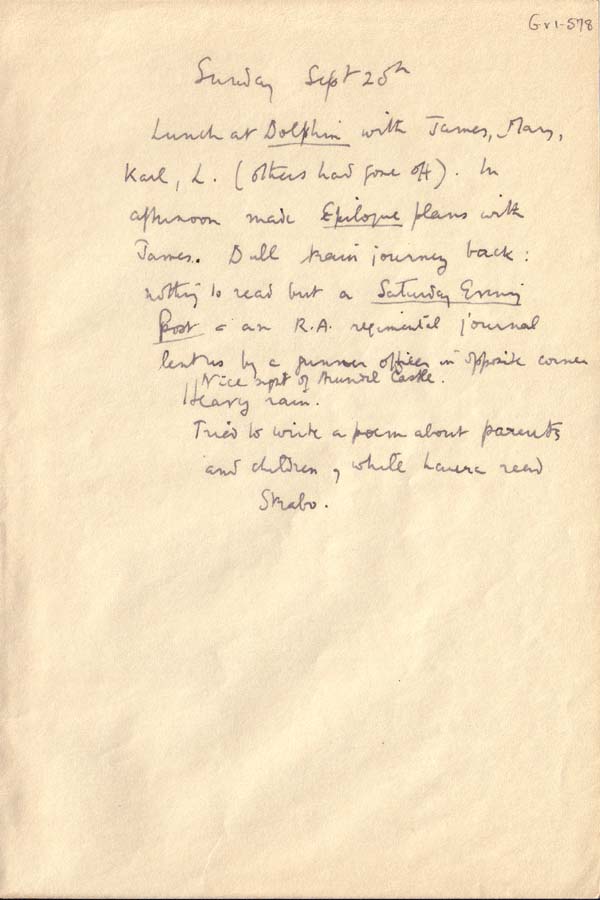 Gr1-578
Sunday Sept 20th
Lunch at Dolphin with James, Mary,
Karl, L. (others had gone off). In
afternoon made Epilogue plans with
James. Dull train journey back:
nothing to read but a Saturday Evening
Post & an R.A. regimental journal
lent us by a gunner officer in opposite corner
Nice sight of Arundel Castle.
Heavy rain.
Tried to write a poem about parents
and children, while Laura read
Strabo.